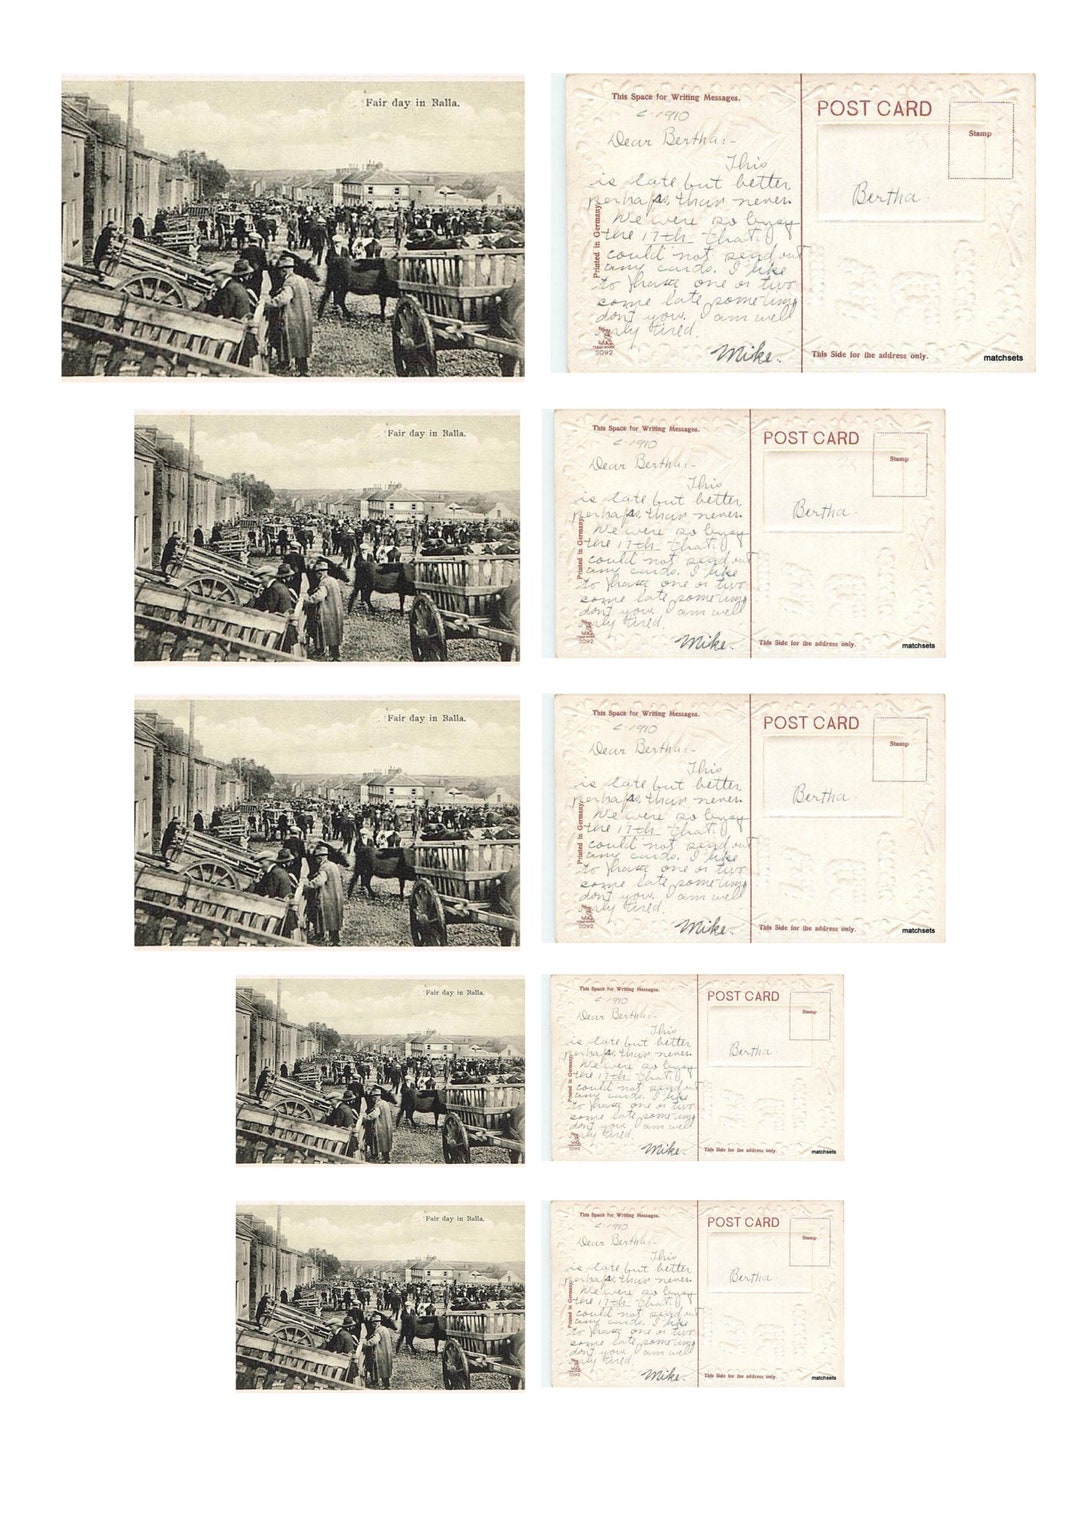 Fair day in Balla.
This Space for Writing Messages.
c-1910
Dear Bertha:-
This
is late but better
perhaps, than never.
We were so busy
the 17th that I
could not send out
any cards. I like
to have one or two
come late,
don't you. I am well
only tired.
Mike.
Printed in Germany
2092
POST CARD
Stamp
Bertha
This Side for the address only.
matchsets
Fair day in Balla.
This Space for Writing Messages.
c-1910
Dear Bertha:-
This
is late but better
perhaps, than never.
We were so busy
the 17th that I
could not send out
any cards. I like
to have one or two
come late,
don't you. I am well
only tired.
Mike.
Printed in Germany
2092
POST CARD
Stamp
Bertha
This Side for the address only.
matchsets
Fair day in Balla.
This Space for Writing Messages.
c-1910
Dear Bertha:-
This
is late but better
perhaps, than never.
We were so busy
the 17th that I
could not send out
any cards. I like
to have one or two
come late,
don't you. I am well
only tired.
Mike.
Printed in Germany
2092
POST CARD
Stamp
Bertha
This Side for the address only.
matchsets
Fair day in Balla.
This Space for Writing Messages.
c-1910
Dear Bertha:-
This
is late but better
perhaps, than never.
We were so busy
the 17th that I
could not send out
any cards. I like
to have one or two
come late,
don't you. I am well
only tired.
Mike.
Printed in Germany
2092
POST CARD
Stamp
Bertha
This Side for the address only.
matchsets
Fair day in Balla.
This Space for Writing Messages.
c-1910
Dear Bertha:-
This
is late but better
perhaps, than never.
We were so busy
the 17th that I
could not send out
any cards. I like
to have one or two
come late,
don't you. I am well
only tired.
Mike.
Printed in Germany
2092
POST CARD
Stamp
Bertha
This Side for the address only.
matchsets